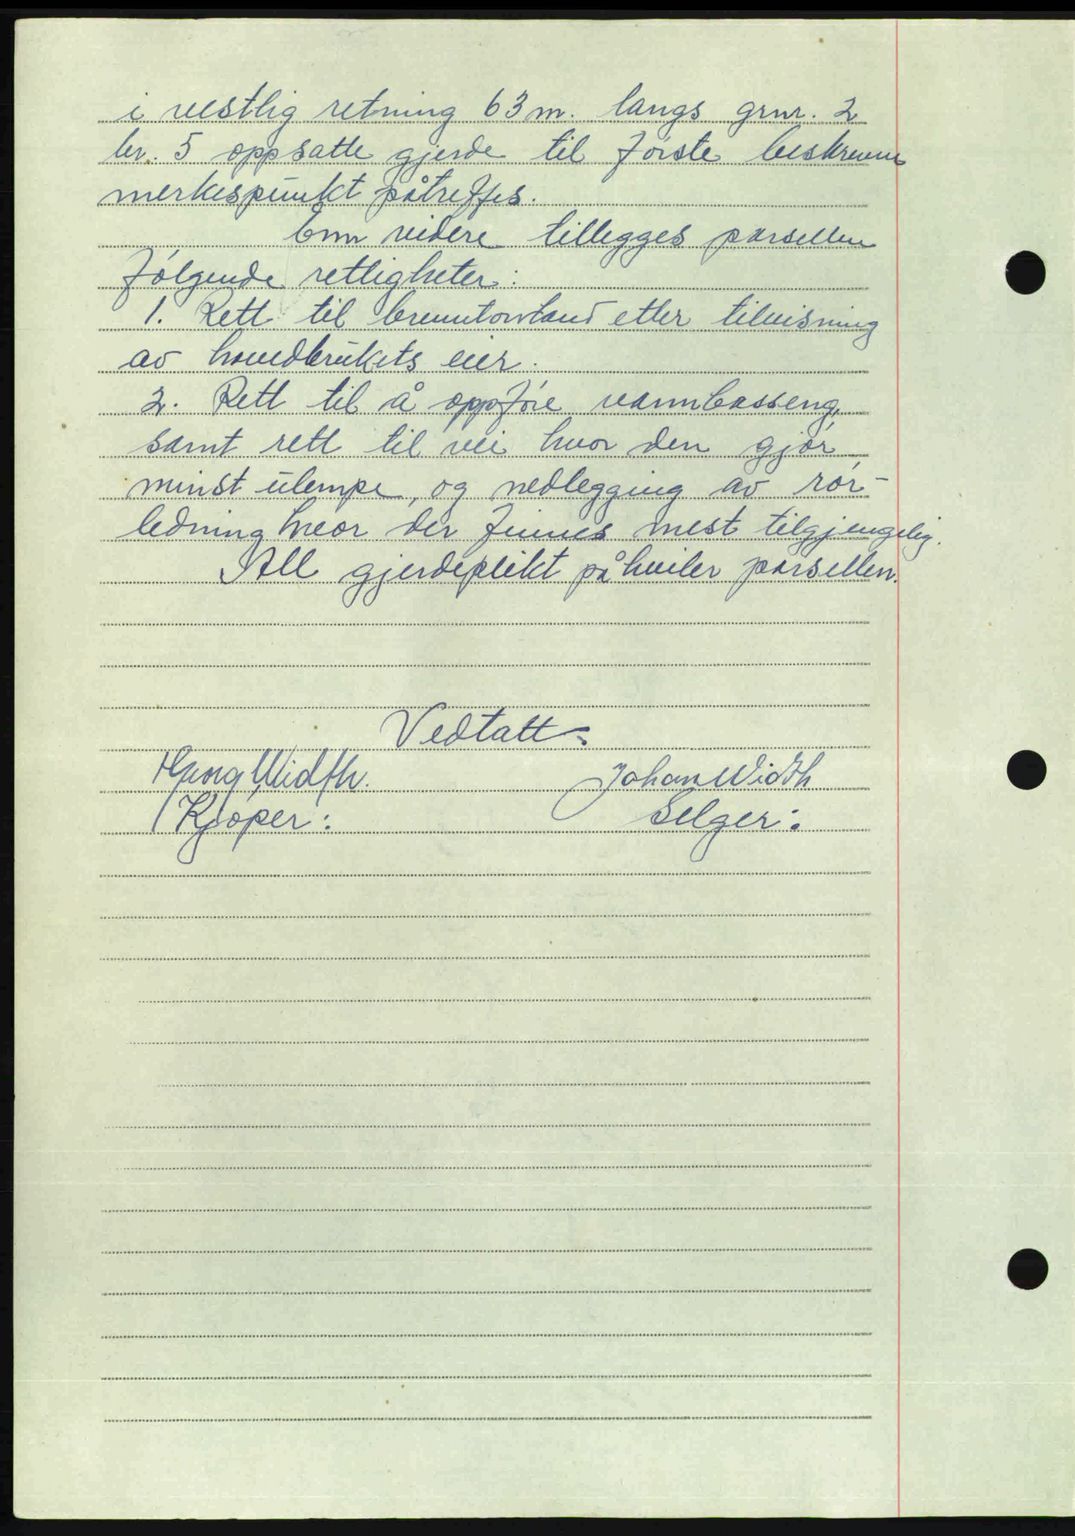 i vestlig retning 63 m. langs grnr. 2
br. 5 oppsatte gjerde til første beskrevne
merkespunkt påtreffes.
Enn videre tillegges parsellen
følgende rettigheter:
1. Rett til brenntorvland etter tilvisning
av hovedbrukets eier.
2. Rett til å oppføre vannbasseng,
samt rett til vei hvor den gjør
minst ulempe, og nedlegging av rør-
ledning hvor der finnes mest tilgjengelig.
All gjerdeplikt påhviler parsellen.
Vedtatt:
Georg Width. Johan Width
Kjøper: Selger: